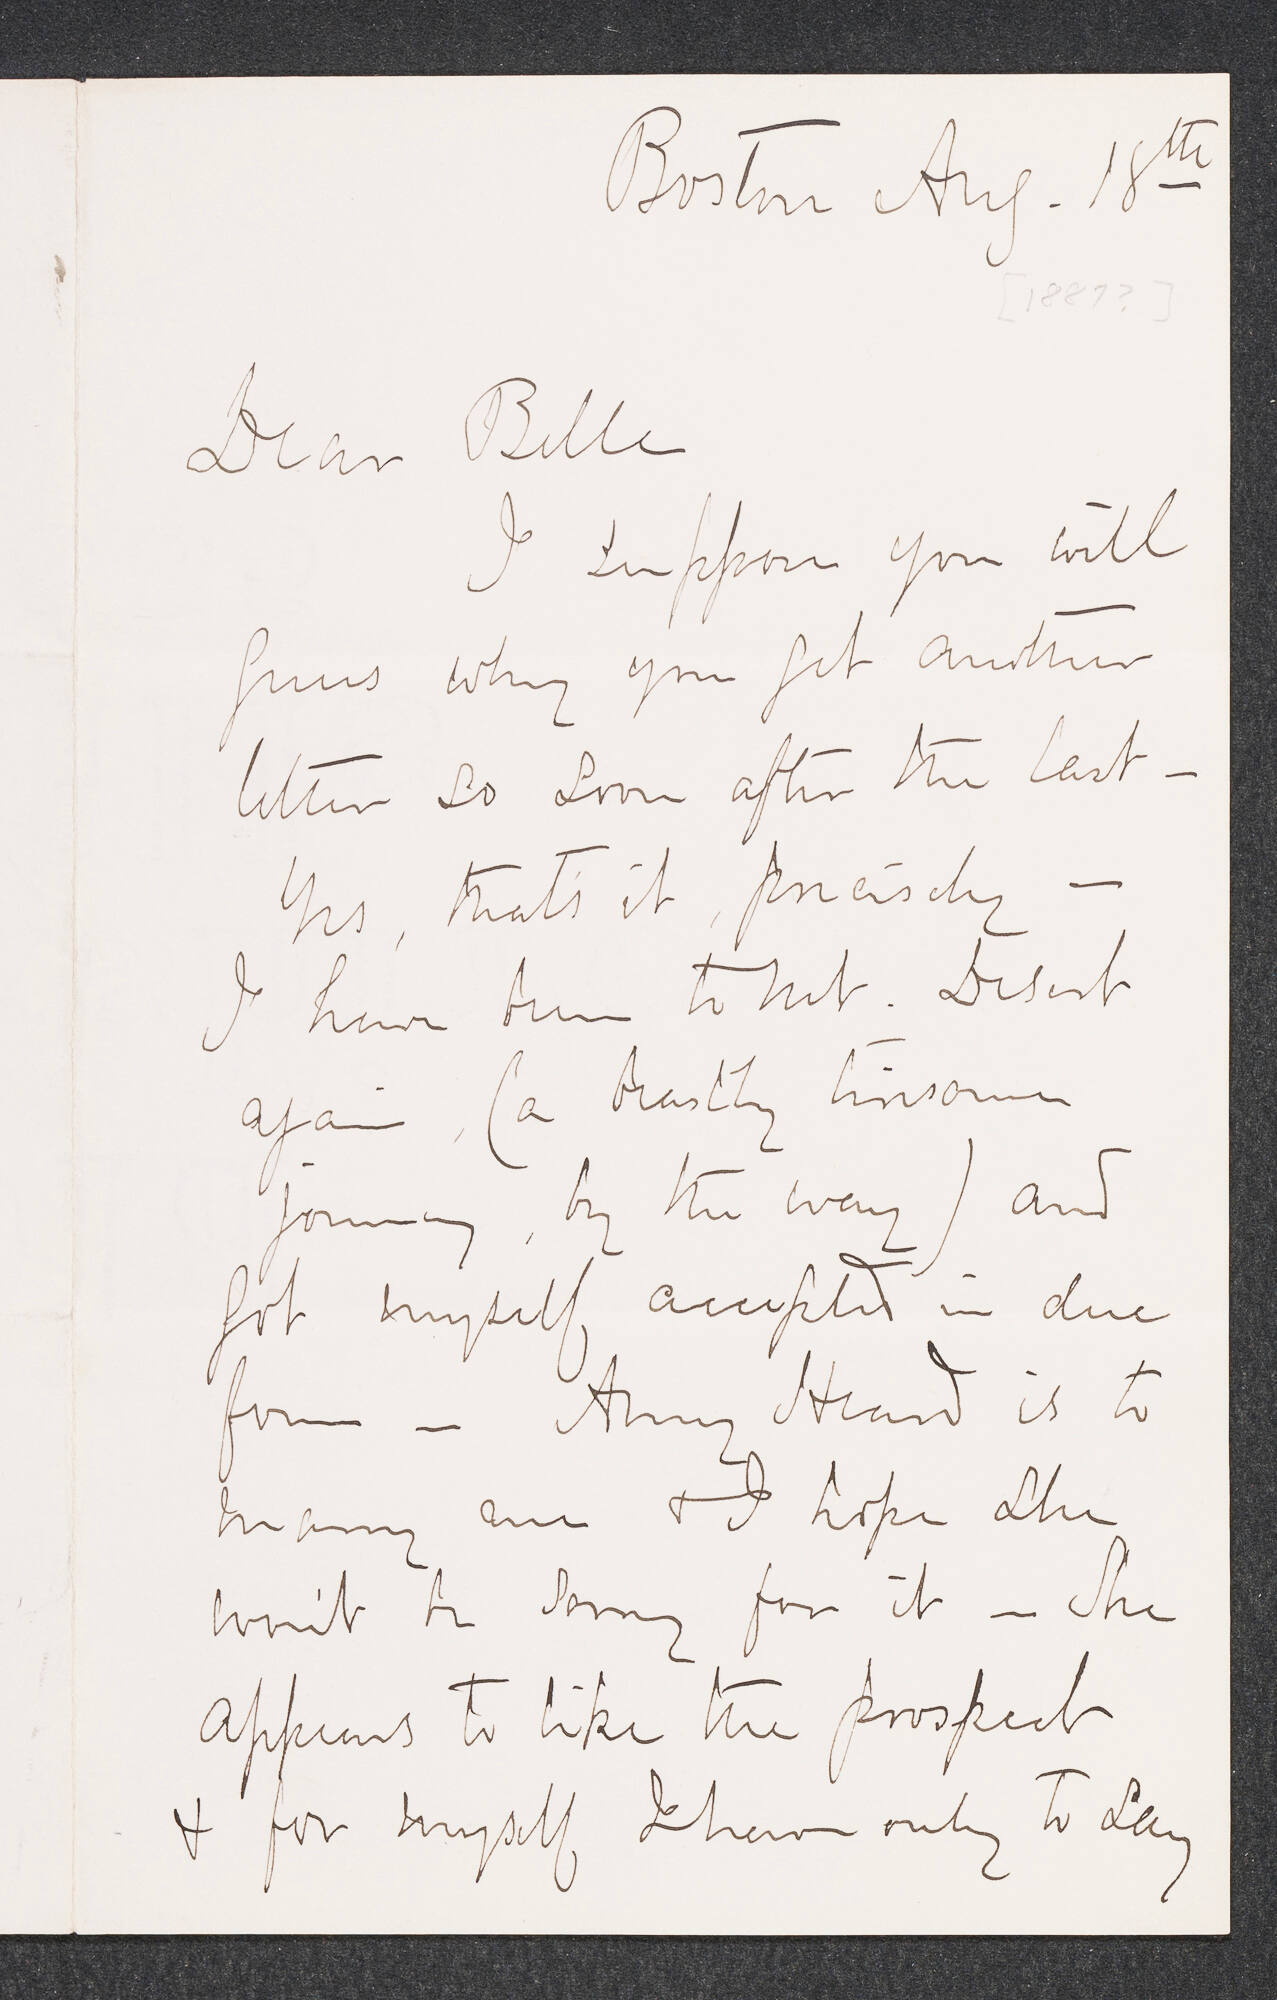 Boston Aug. 18th
[1887?]
Dear Belle
I suppose you will
guess why you get another
letter so soon after the last —
Yes, that's it, precisely —
I have been to Mt. Desert
again, (a beastly tiresome
journey, by the way) and
got myself accepted in due
form — Amy Heard is to
marry me & I hope she
won't be sorry for it — She
appears to like the prospect
& for myself I have only to say